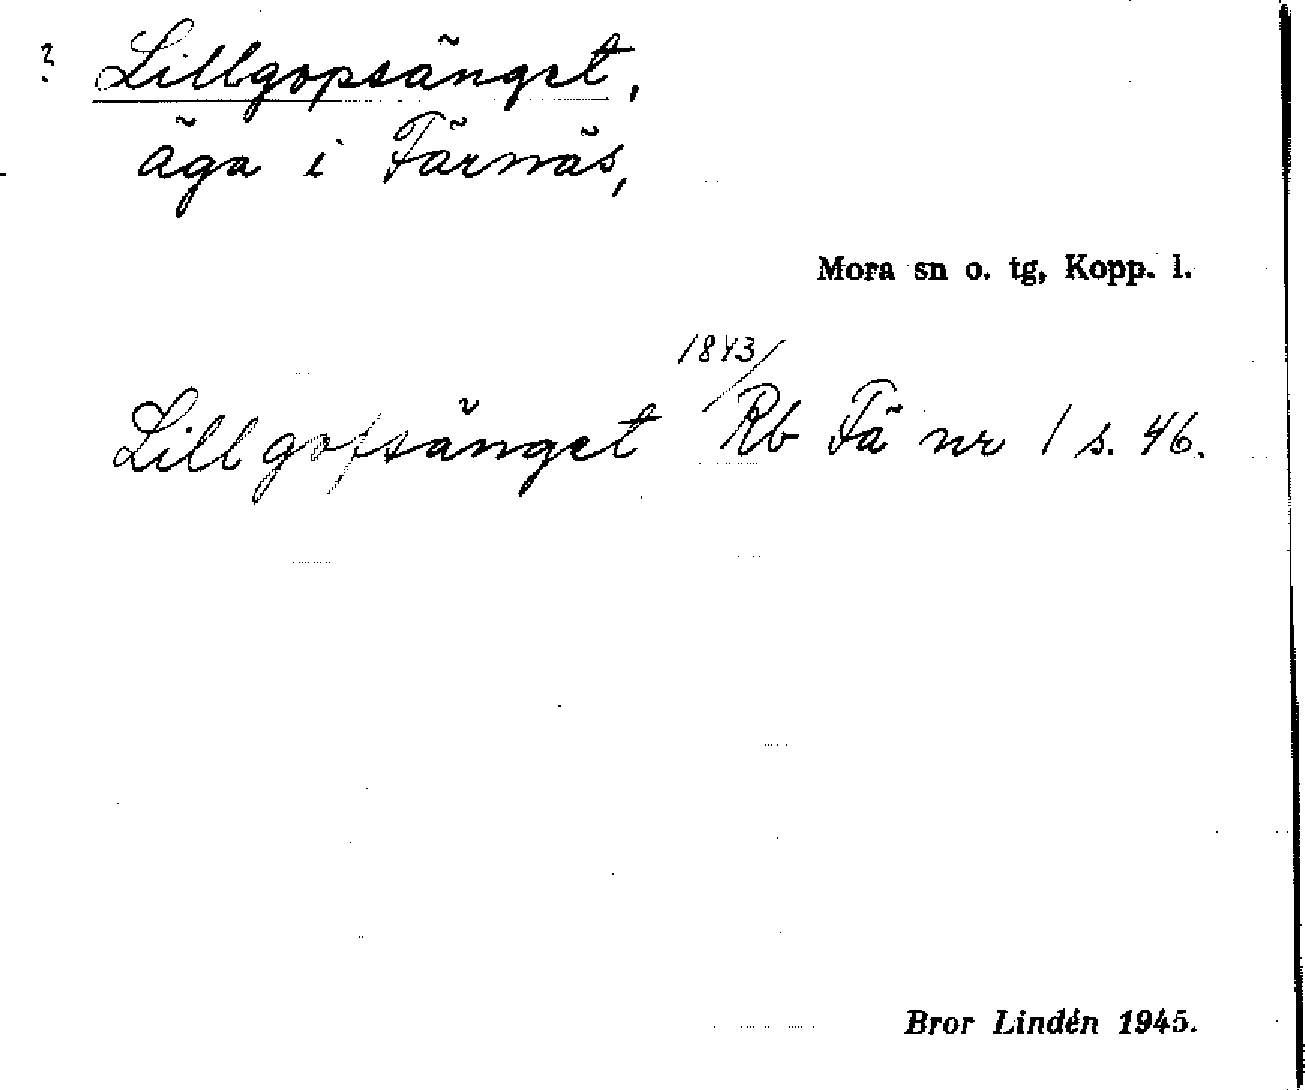 ? Lillgopsänget,
äga i Färnäs,
Mora sn o. tg, Kopp. l.
1843/
Lillgofsänget Rb Fä nr 1 s. 46.
Bror Lindén 1945.